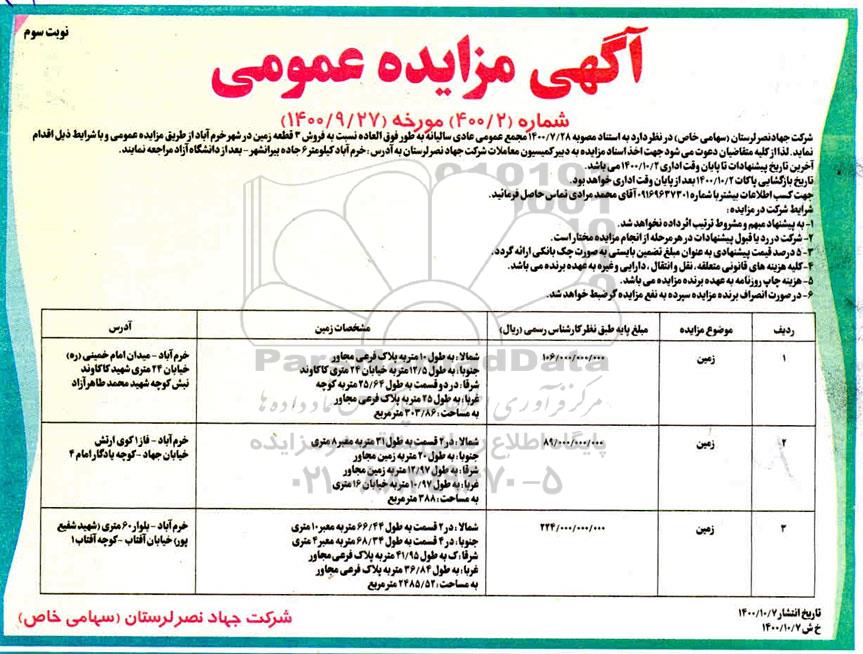 نوبت سوم
آگهی مزایده عمومی
شماره (۴۰۰/۲) مورخه (۱۴۰۰/۹/۲۷)
شرکت جهاد نصر لرستان (سهامی خاص) در نظر دارد به استناد مصوبه ۱۴۰۰/۷/۲۸ مجمع عمومی عادی سالیانه به طور فوق العاده نسبت به فروش ۳ قطعه زمین در شهر خرم آباد از طریق مزایده عمومی و با شرایط ذیل اقدام
نماید. لذا از کلیه متقاضیان دعوت می شود جهت اخذ اسناد مزایده به دبیر کمیسیون معاملات شرکت جهاد نصر لرستان به آدرس: خرم آباد کیلومتر ۶ جاده بیرانشهر - بعد از دانشگاه آزاد مراجعه نمایند.
آخرین تاریخ پیشنهادات تا پایان وقت اداری ۱۴۰۰/۱۰/۲ می باشد.
تاریخ بازگشایی پاکات ۱۴۰۰/۱۰/۲ بعد از پایان وقت اداری خواهد بود.
جهت کسب اطلاعات بیشتر با شماره ۰۹۱۶۹۶۳۷۳۰۱ آقای محمد مرادی تماس حاصل فرمائید.
شرایط شرکت در مزایده:
۱- به پیشنهاد مبهم و مشروط ترتیب اثر داده نخواهد شد.
۲- شرکت در رد یا قبول پیشنهادات در هر مرحله از انجام مزایده مختار است.
۳- ۵ درصد قیمت پیشنهادی به عنوان مبلغ تضمین بایستی به صورت چک بانکی ارائه گردد.
۴- کلیه هزینه های قانونی متعلقه، نقل و انتقال، دارایی و غیره به عهده برنده می باشد.
۵- هزینه چاپ روزنامه به عهده برنده مزایده می باشد.
۶- در صورت انصراف برنده مزایده سپرده به نفع مزایده گر ضبط خواهد شد.
ردیف موضوع مزایده مبلغ پایه طبق نظر کارشناس رسمی (ریال) مشخصات زمین آدرس
۱ زمین ۱۰۶/۰۰۰/۰۰۰/۰۰۰
شمالا: به طول ۱۰ متر به پلاک فرعی مجاور
جنوبا: به طول ۱۲/۵ متر به خیابان ۲۴ متری کاکاوند
شرقا: در دو قسمت به طول ۲۵/۶۴ متر به کوچه
غربا: به طول ۲۵ متر به پلاک فرعی مجاور
به مساحت: ۳۰۳/۸۶ متر مربع
خرم آباد - میدان امام خمینی (ره)
خیابان ۲۴ متری شهید کاکاوند
نبش کوچه شهید محمد طاهر آزاد
۲ زمین ۸۹/۰۰۰/۰۰۰/۰۰۰
شمالا: در ۲ قسمت به طول ۳۱ متر به معبر ۸ متری
جنوبا: به طول ۲۰ متر به زمین مجاور
شرقا: به طول ۱۲/۹۷ متر به زمین مجاور
غربا: به طول ۱۰/۹۷ متر به خیابان ۱۶ متری
به مساحت: ۳۸۸ متر مربع
خرم آباد - فاز ۱ کوی ارتش
خیابان جهاد - کوچه یادگار امام ۴
۳ زمین ۲۲۴/۰۰۰/۰۰۰/۰۰۰
شمالا: در ۲ قسمت به طول ۶۶/۴۴ متر به معبر ۱۰ متری
جنوبا: در ۴ قسمت به طول ۶۸/۳۴ متر به معبر ۴ متری
شرقا: ک به طول ۴۱/۹۵ متر به پلاک فرعی مجاور
غربا: به طول ۳۶/۸۴ متر به پلاک فرعی مجاور
به مساحت: ۲۴۸۵/۵۲ متر مربع
خرم آباد - بلوار ۶۰ متری (شهید شفیع
پور) خیابان آفتاب - کوچه آفتاب ۱
تاریخ انتشار ۱۴۰۰/۱۰/۷
خ ش ۱۴۰۰/۱۰/۷
شرکت جهاد نصر لرستان (سهامی خاص)